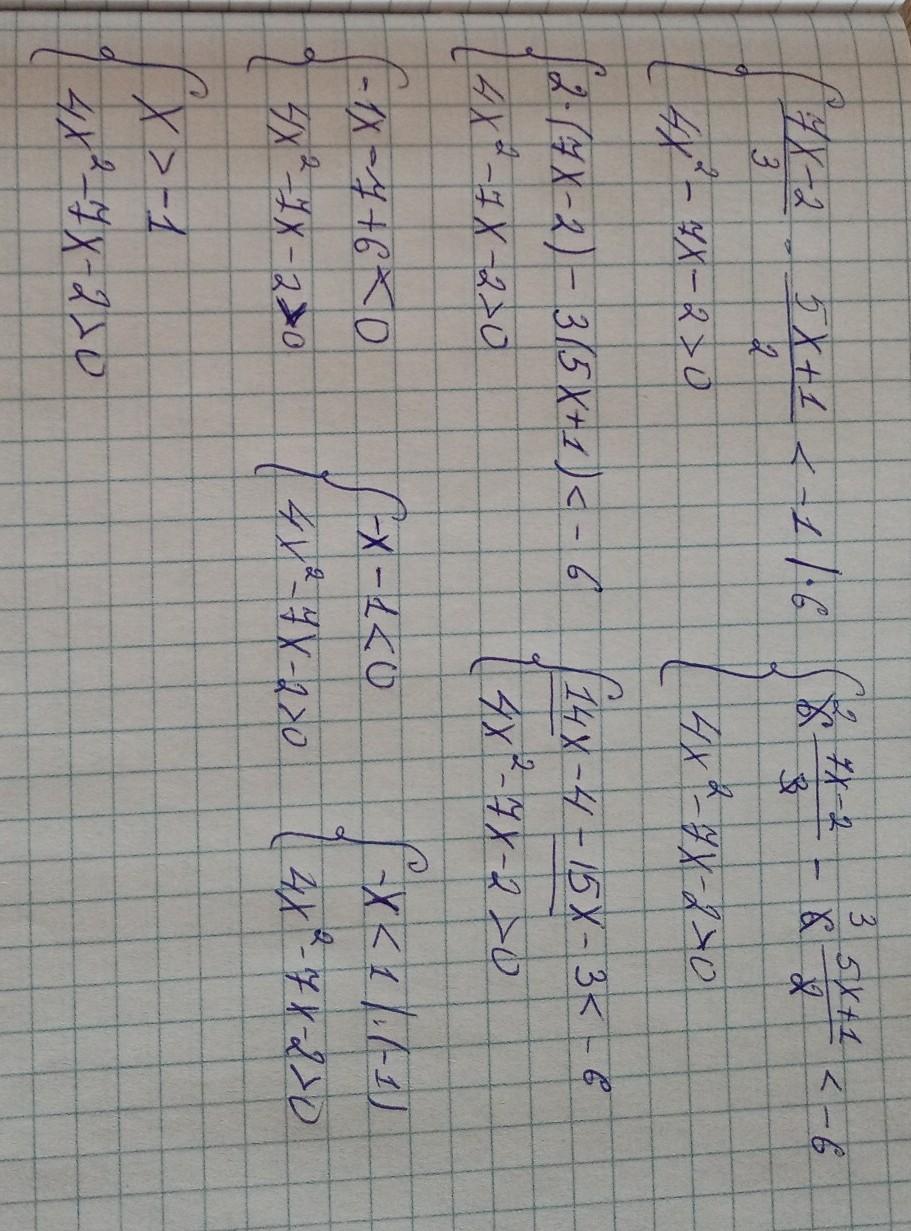 { (7x-2)/3 - (5x+1)/2 < -1 |·6
4x² - 7x - 2 > 0
{ 6² (7x-2)/3 - 6³ (5x+1)/2 < -6
4x² - 7x - 2 > 0
{ 2·(7x-2) - 3(5x+1) < -6
4x² - 7x - 2 > 0
{ 14x - 4 - 15x - 3 < -6
4x² - 7x - 2 > 0
{ -1x - 7 + 6 < 0
4x² - 7x - 2 > 0
{ -x - 1 < 0
4x² - 7x - 2 > 0
{ -x < 1 |·(-1)
4x² - 7x - 2 > 0
{ x > -1
4x² - 7x - 2 > 0